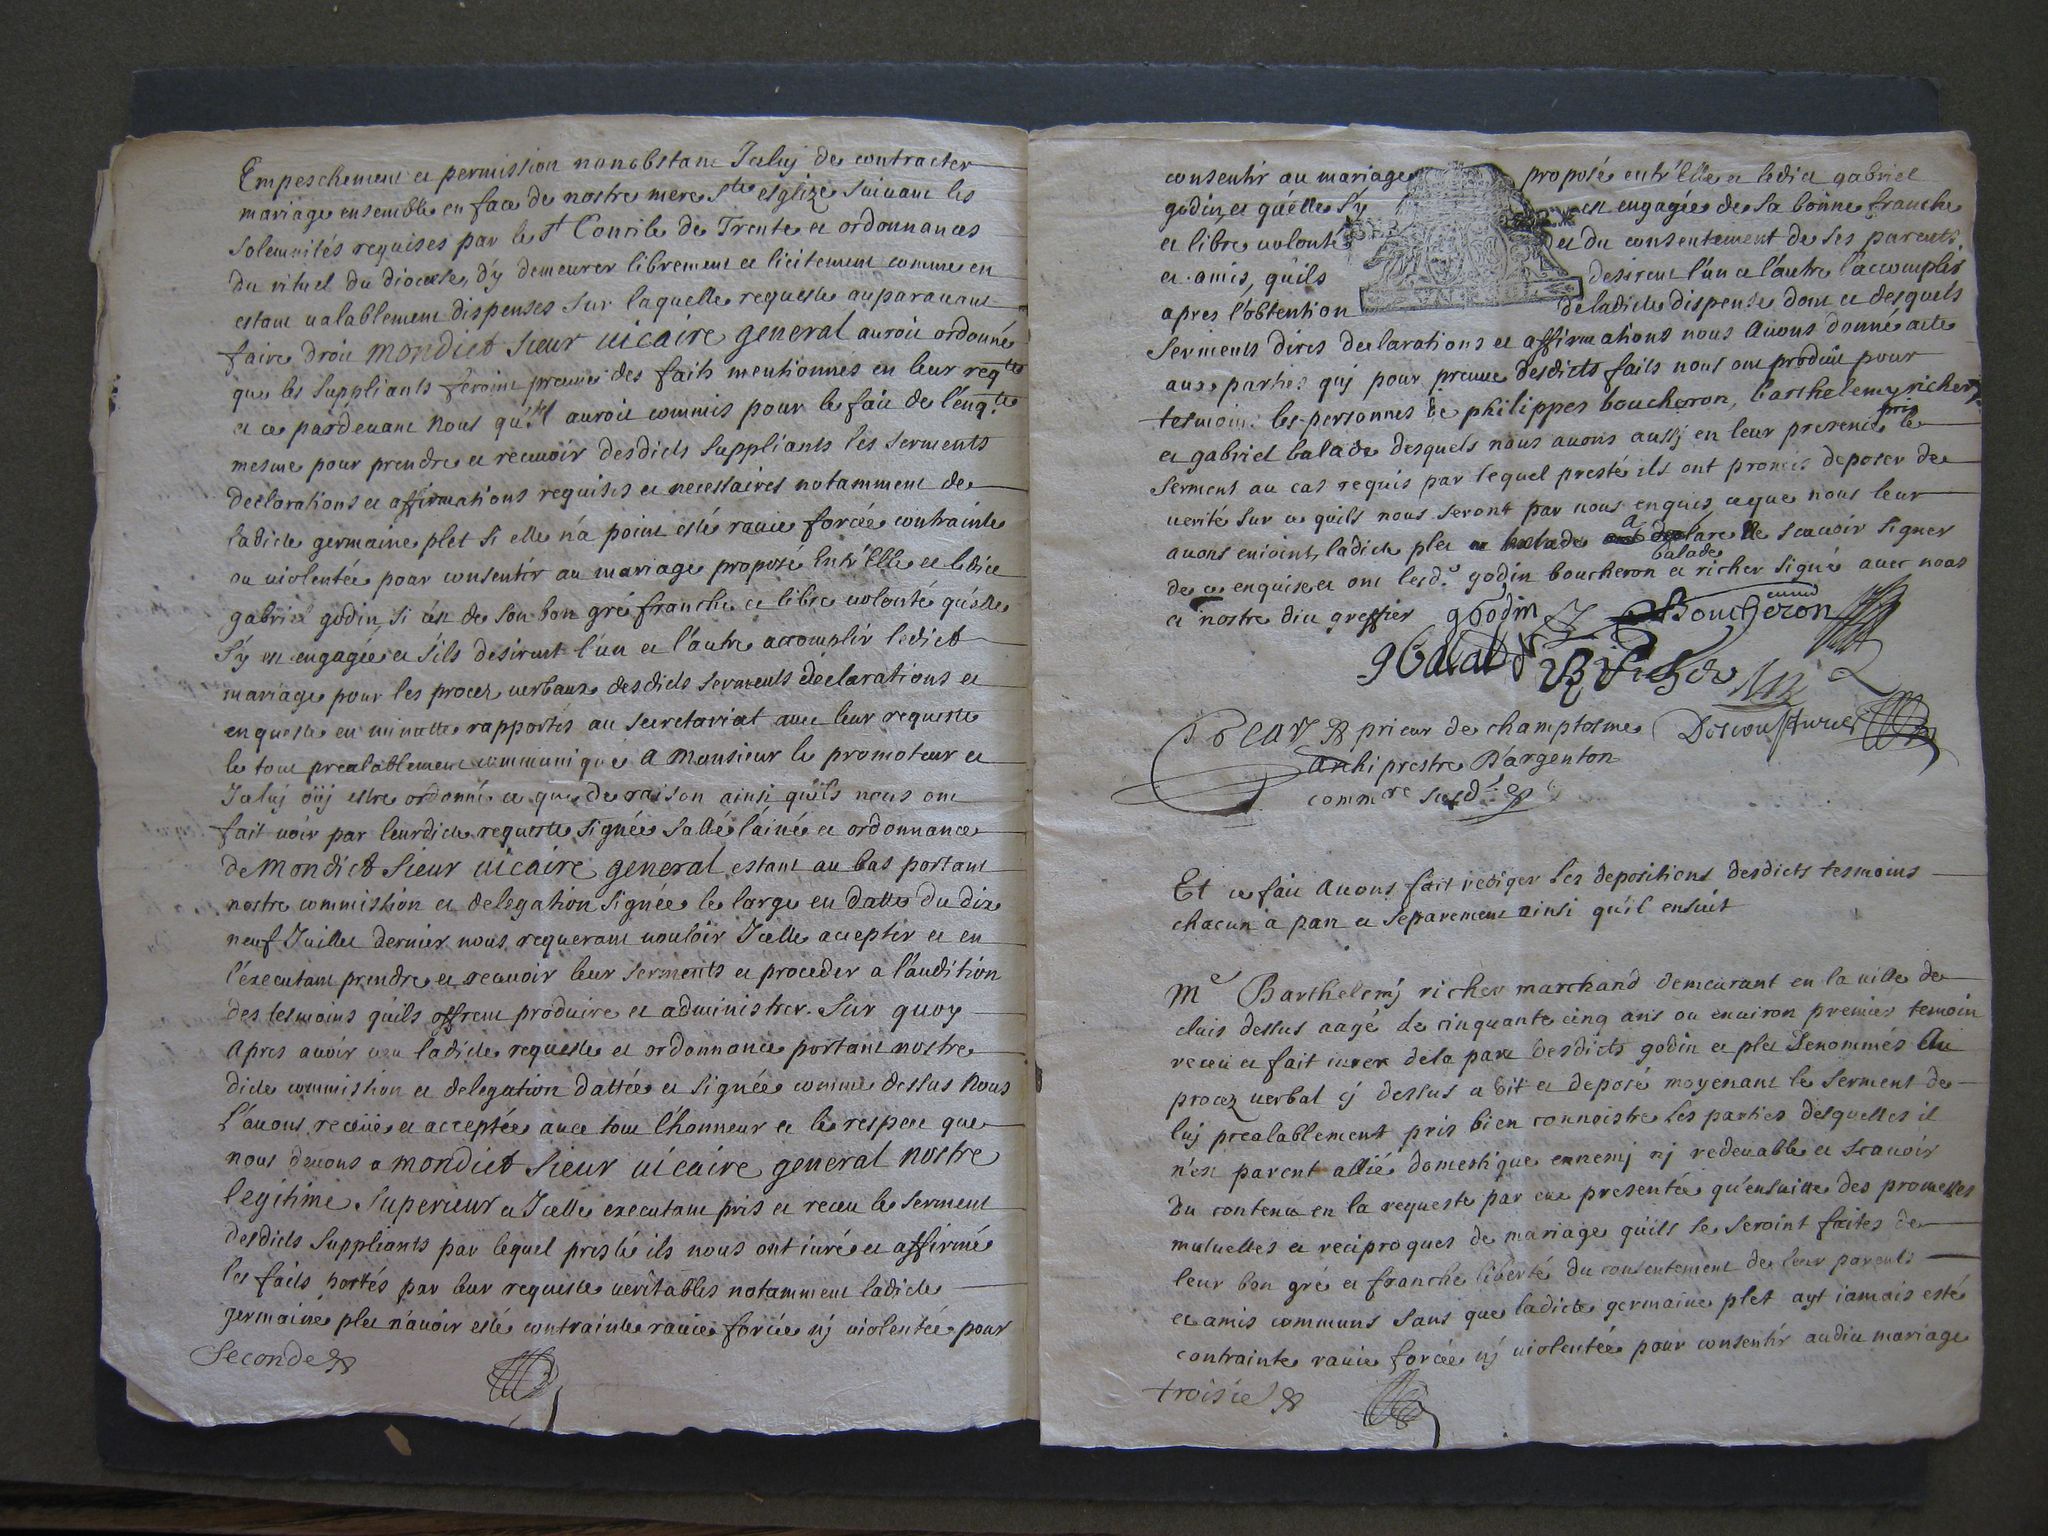 Empeschement et permission nonobstant Iceluj de contracter
mariage ensemble en face de nostre mere ste esglize suivant les
solemnités requises par le st Concile de Trente et ordonnances
du rituel du diocese, d'y demeurer librement et licitement comme en
estant ualablement dispensés sur laquelle requeste auparauant
faire droit mondict sieur uicaire general auroit ordonné
que les suppliants feroint preuue des faits mentionnés en leur reqte
et ce pardeuant nous qu'il auroit commis pour le fait de l'enqte
mesme pour prendre et receuoir desdicts suppliants les serments
declarations et affirmations requises et necessaires notamment de
ladicte germaine plet si elle n'a point esté rauie forcée contrainte
ou uiolentée pour consentir au mariage proposé entr'Elle et ledict
gabriel godin, si c'est de son bon gré franche et libre uolonté qu'elle
s'y est engagée et s'ils desirent l'un et l'autre accomplir ledict
mariage pour les procez uerbaux desdicts serments declarations et
enqueste en minutte rapportés au secretariat auec leur requeste
le tout prealablement communiqué a monsieur le promoteur et
Iceluj oüj estre ordonné ce que de raison ainsi qu'ils nous ont
fait uoir par leurdicte requeste signée sallé l'ainé et ordonnance
de mondict sieur uicaire general estant au bas portant
nostre commission et delegation signée le large en datte du dix
neuf Juillet dernier nous requerant uouloir Icelle accepter et en
l'executant prendre et receuoir leur serments et proceder a l'audition
des tesmoins qu'ils offrent produire et administrer. Sur quoy
apres auoir ueu ladicte requeste et ordonnance portant nostre
dicte commission et delegation dattée et signée comme dessus nous
l'auons receüe et acceptée auec tout l'honneur et le respect que
nous deuons a mondict sieur uicaire general nostre
legitime superieur et Icelle executant pris et receu le serment
desdicts suppliants par lequel presté ils nous ont iuré et affirmé
les faits portés par leur requeste ueritables notamment ladicte
germaine plet n'auoir esté contrainte rauie forcée nj uiolentée pour
Seconde
consentir au mariage proposé entr'Elle et ledict gabriel
godin et qu'elle s'y est engagée de sa bonne franche
et libre uolonté et du consentement de ses parents
et amis, qu'ils desirent l'un et l'autre l'accomplir
apres l'obtention de ladicte dispense dont et desquels
serments dires declarations et affirmations nous auons donné acte
aux parties quj pour preuue desdicts faits nous ont produit pour
tesmoins les personnes de philippes boucheron, barthelemy richer,
pris
et gabriel balade desquels nous auons aussj en leur presence le
serment au cas requis par lequel presté ils ont promis deposer de
uerité sur ce qu'ils nous seront par nous enquis ce que nous leur
auons enioint, ladicte plet et balade a declaré ne scauoir signer
balade
de ce enquise et ont lesd. godin boucheron et richer signé auec nous
et nostre dict greffier gGodin Boucheron
gBalade B Richer
prieur de champtosme
archiprestre D'argenton
commre susd.
Et ce fait auons fait rediger les depositions desdicts tesmoins
chacun a part et separement ainsi qu'il ensuit
Me Barthelemj richer marchand demeurant en la uille de
cluis dessus aagé de cinquante cinq ans ou enuiron premier temoin
receu et fait iurer de la part desdicts godin et plet denommés au
procez uerbal cj dessus a dit et deposé moyenant le serment de
luj prealablement pris bien connoistre les parties desquelles il
n'est parent allié domestique ennemj nj redeuable et scauoir
du contenu en la requeste par eux presentée qu'ensuitte des promesses
mutuelles et reciproques de mariage qu'ils se seroint faites de
leur bon gré et franche liberté du consentement de leur parents
et amis communs sans que ladicte germaine plet ayt iamais esté
contrainte rauie forcée nj uiolentée pour consentir audit mariage
troisie